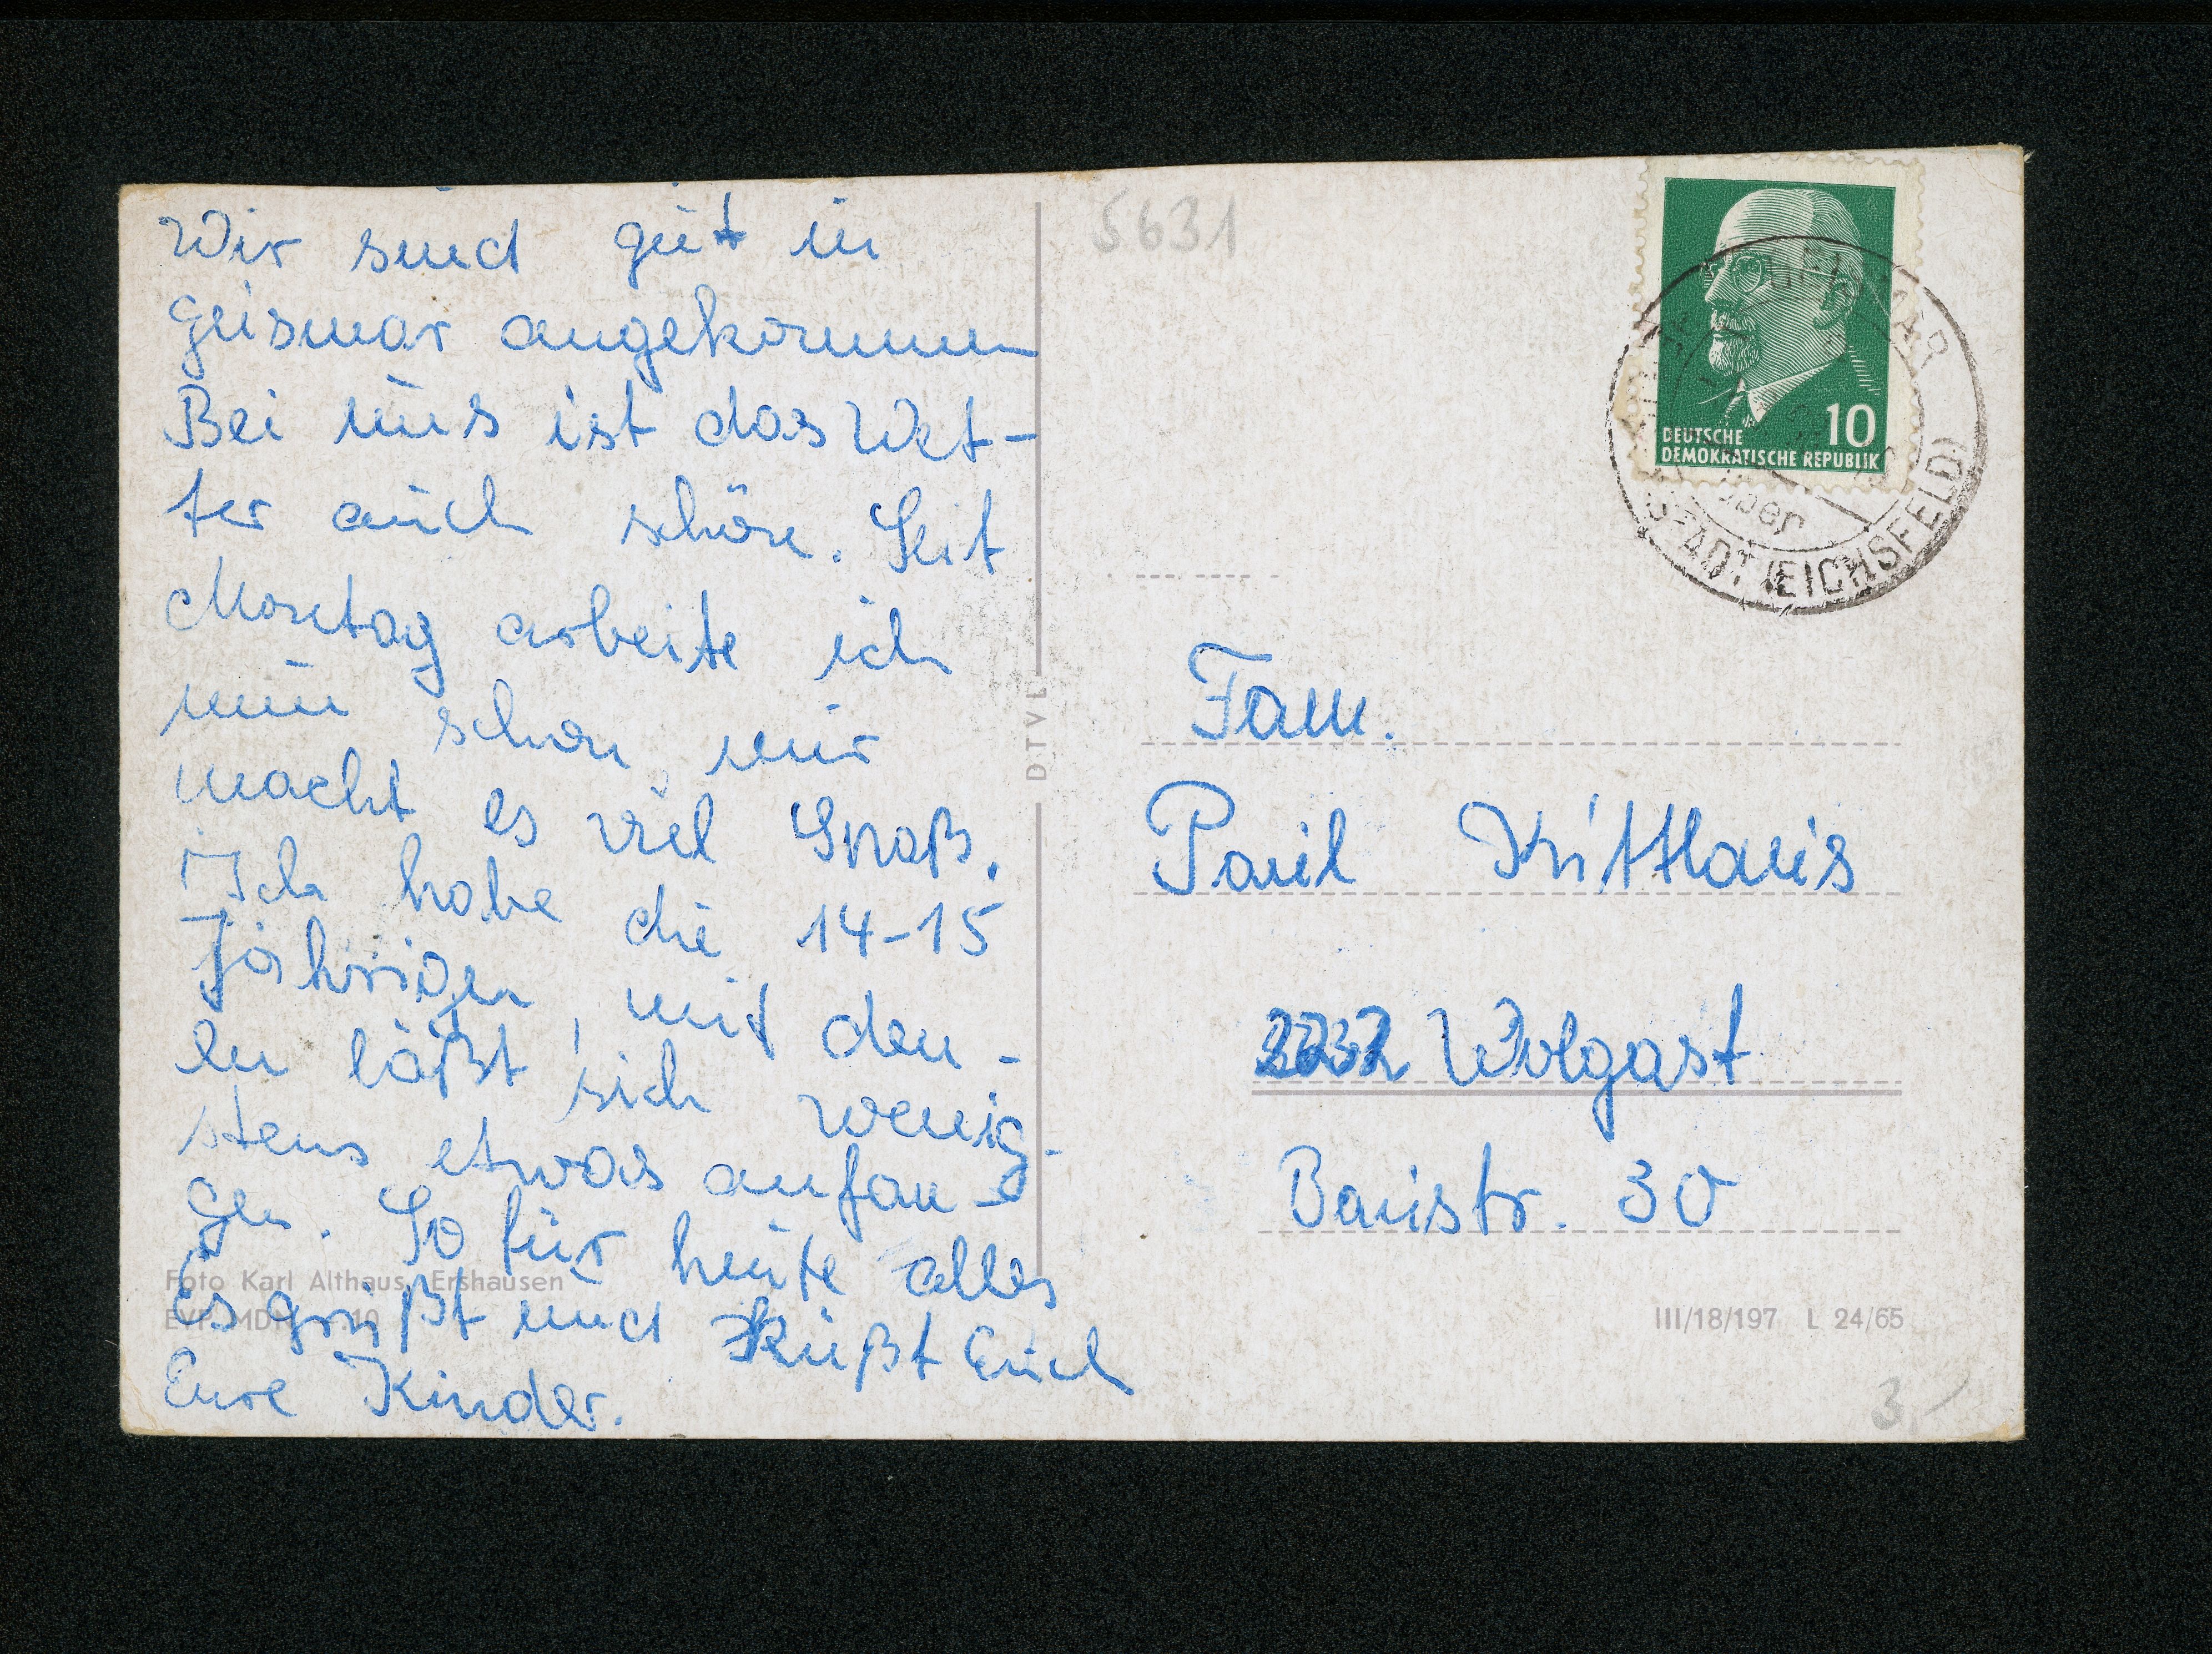 Wir sind gut in
Geismar angekommen
Bei uns ist das Wet-
ter auch schön. Seit
Montag arbeite ich
nun schon, mir
macht es viel Spaß.
Ich habe die 14-15
Jährigen, mit den-
en läßt sich wenig-
stens etwas anfan-
gen. So für heute alles
Es grüßt und Küßt Euch
Eure Kinder.
Foto Karl Althaus, Ershausen
5631
DTV
10
DEUTSCHE
DEMOKRATISCHE REPUBLIK
über
STADT (EICHSFELD)
Fam.
Paul
Wolgast
Baustr. 30
III/18/197 L 24/65
3,-